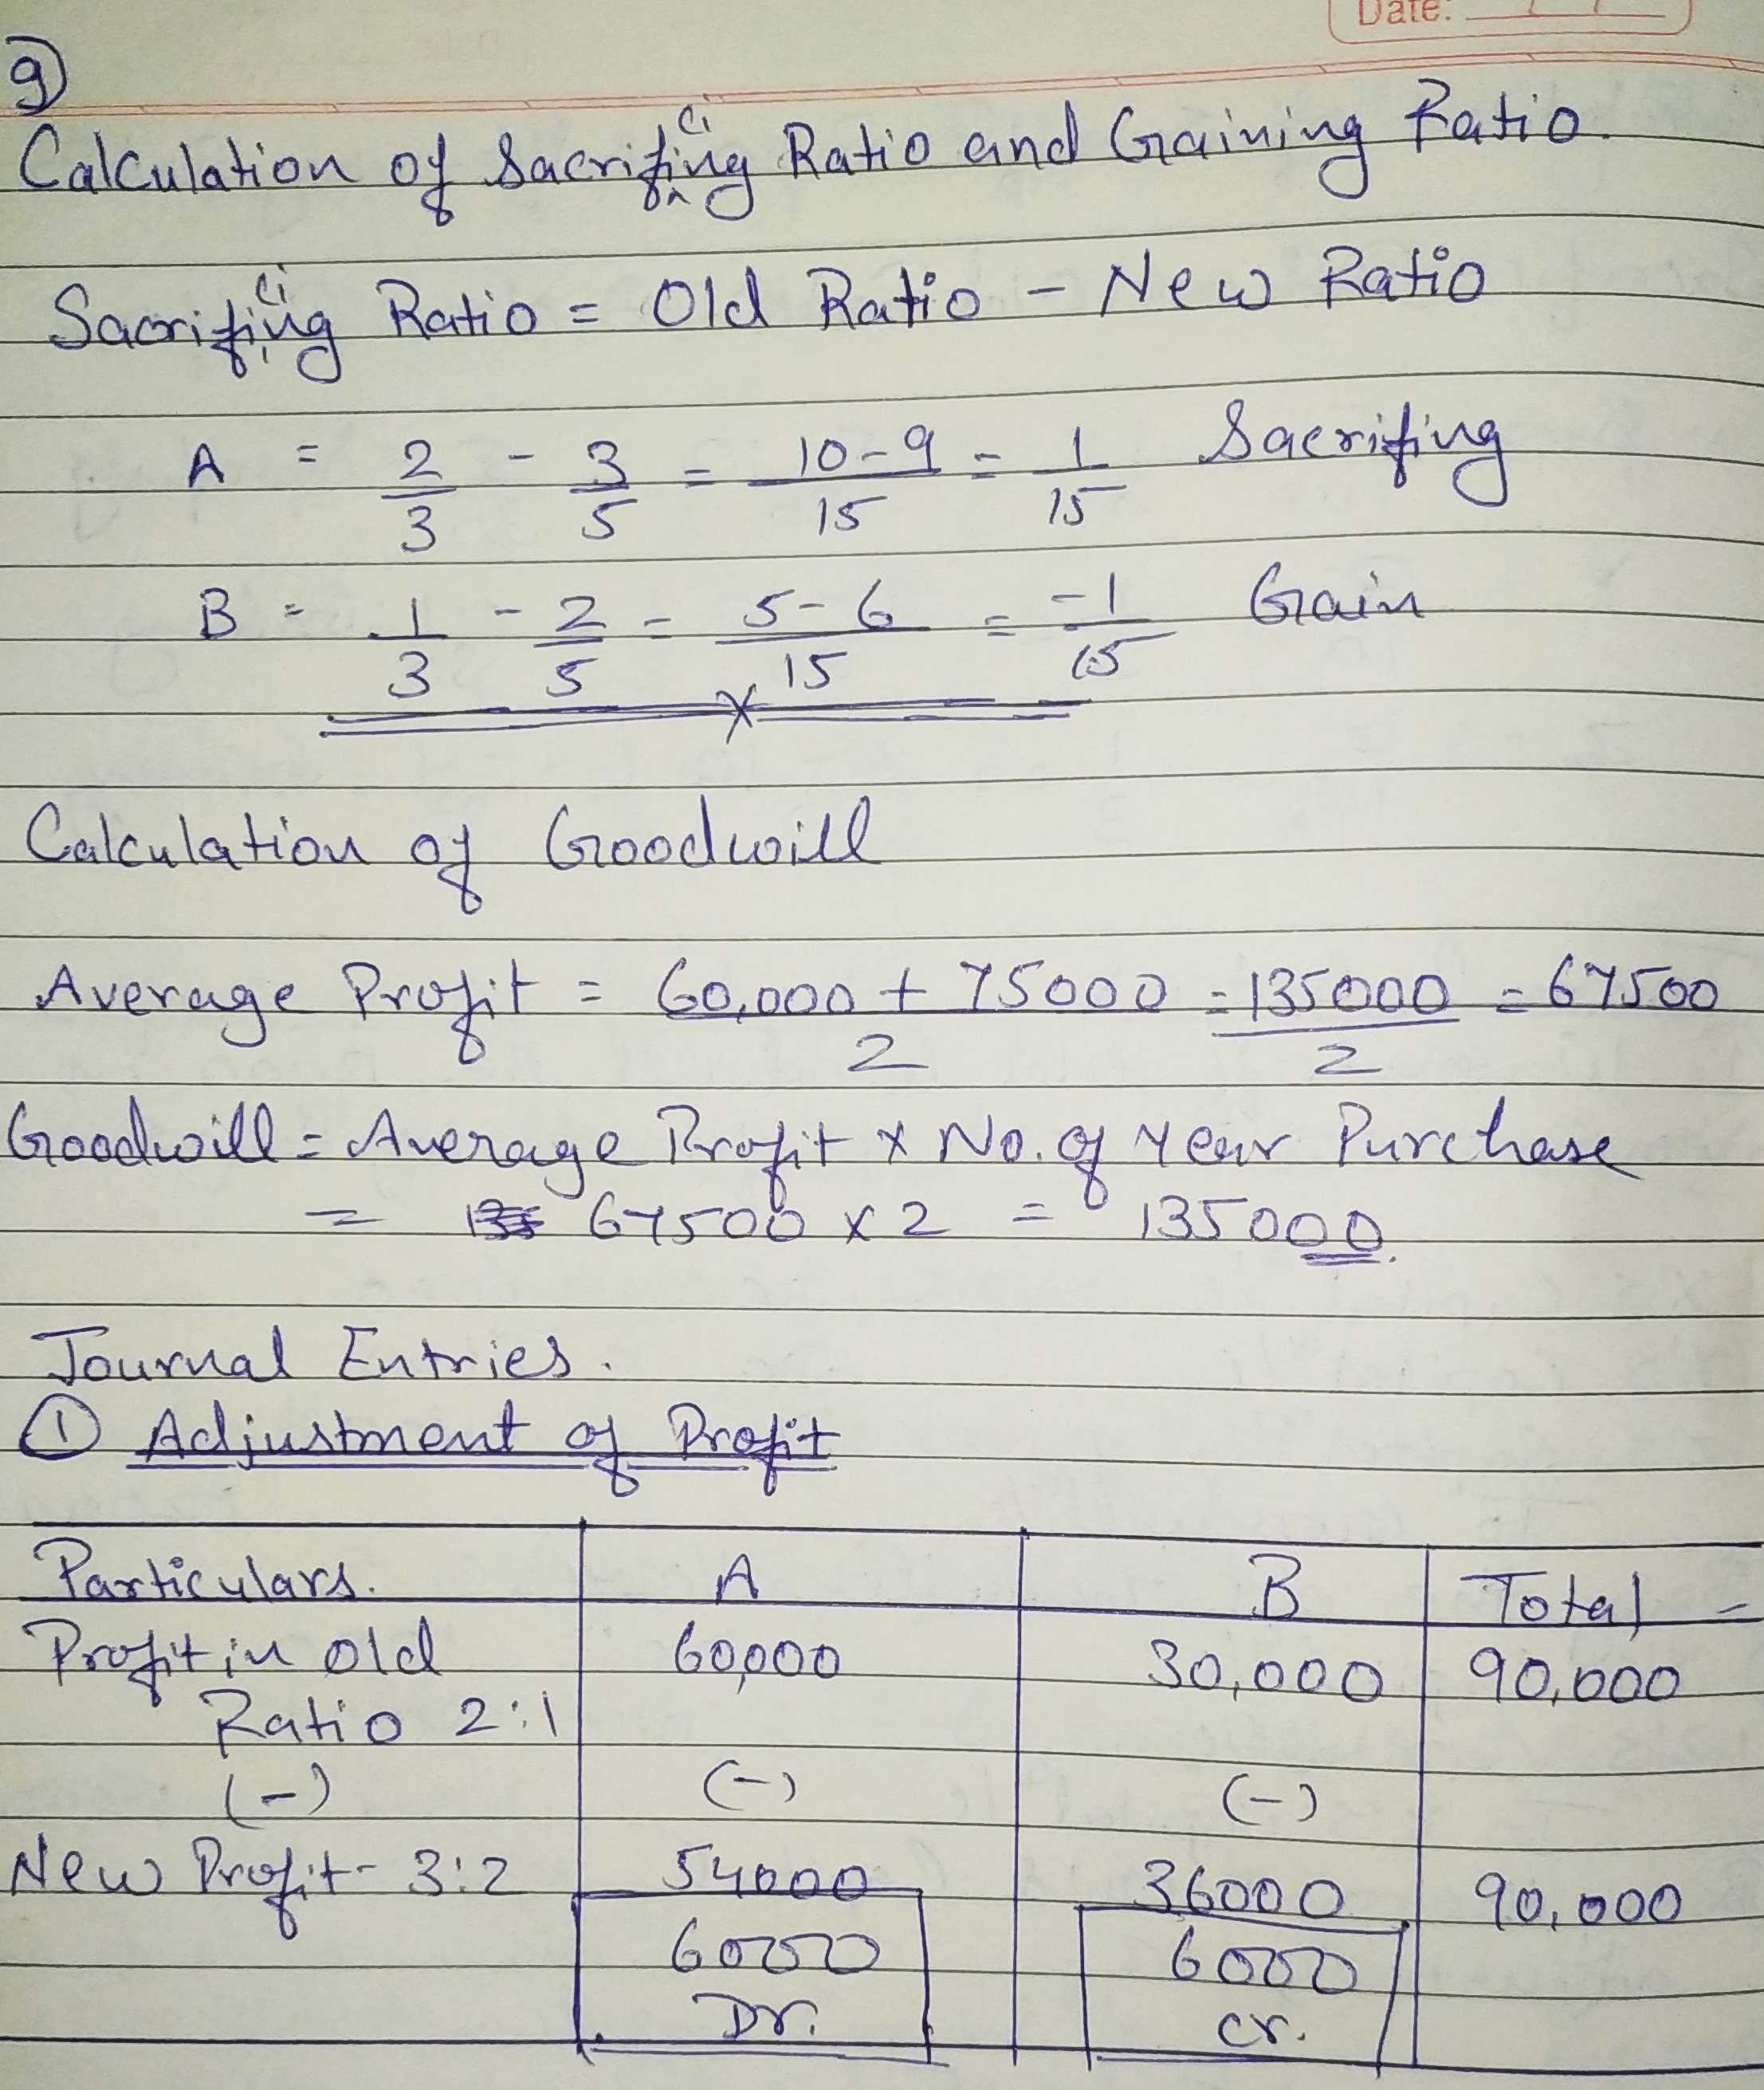 Date: / /
9)
Calculation of Sacrificing Ratio and Graining Ratio.
Sacrificing Ratio = Old Ratio - New Ratio
A = 2/3 - 3/5 = 10-9/15 = 1/15 Sacrifing
B = 1/3 - 2/5 = 5-6/15 = -1/15 Grain
x
Calculation of Goodwill
Average Profit = 60,000 + 75000/2 = 135000/2 = 67500
Goodwill = Average Profit x No. of Year Purchase
= 135 67500 x 2 = 135000.
Journal Entries.
① Adjustment of Profit
Particulars. A B Total
Profit in Old 60,000 30,000 90,000
Ratio 2:1
(-) (-) (-)
New Profit- 3:2 54000 36000 90,000
6000 6000
Dr. Cr.